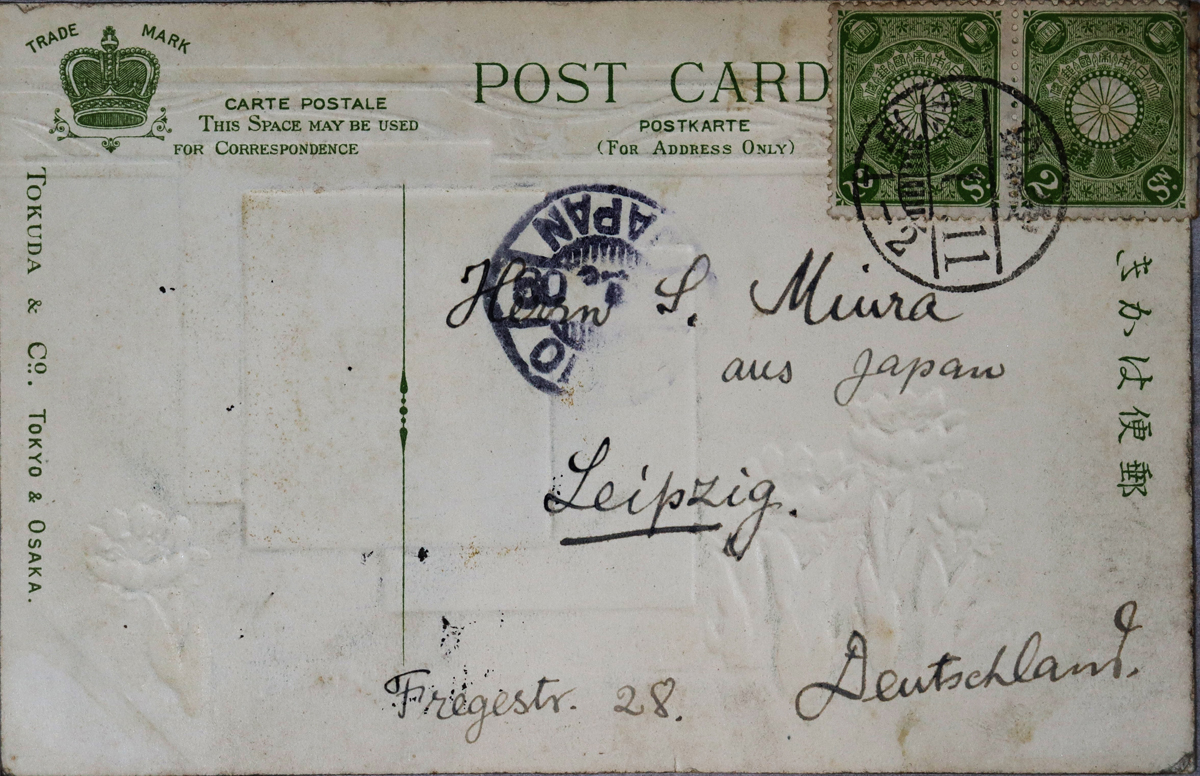 TRADE MARK
CARTE POSTALE
THIS SPACE MAY BE USED
FOR CORRESPONDENCE
POST CARD
POSTKARTE
(FOR ADDRESS ONLY)
TOKUDA & Co. TOKYO & OSAKA.
2 Sn.
2 Sn.
11
JAPAN
09
Herrn S. Miura
aus Japan
Leipzig.
Fregestr. 28.
Deutschland.
きかは便郵